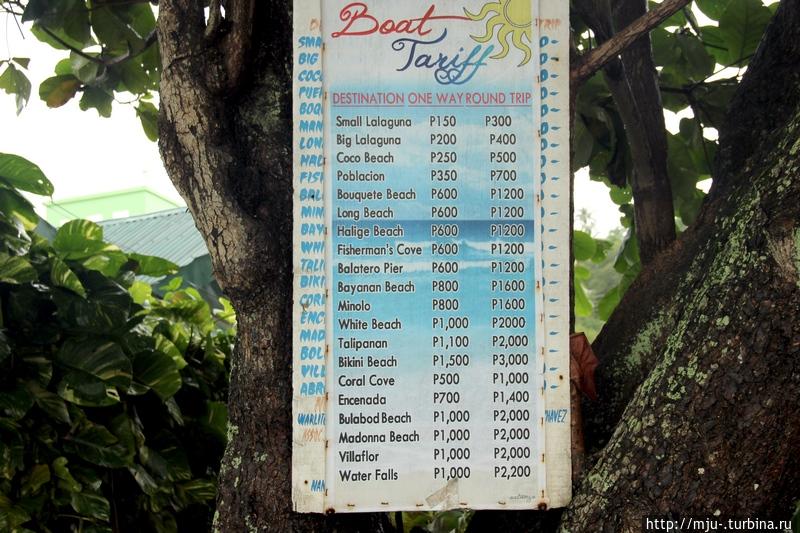 Boat
Tariff
DESTINATION ONE WAY ROUND TRIP
Small Lalaguna P150 P300
Big Lalaguna P200 P400
Coco Beach P250 P500
Poblacion P350 P700
Bouquete Beach P600 P1200
Long Beach P600 P1200
Halige Beach P600 P1200
Fisherman's Cove P600 P1200
Balatero Pier P600 P1200
Bayanan Beach P800 P1600
Minolo P800 P1600
White Beach P1,000 P2000
Talipanan P1,100 P2,000
Bikini Beach P1,500 P3,000
Coral Cove P500 P1,000
Encenada P700 P1,400
Bulabod Beach P1,000 P2,000
Madonna Beach P1,000 P2,000
Villaflor P1,000 P2,000
Water Falls P1,000 P2,200
TRIP
SMA
BIG
COCO
PUE
BOQ
MAN
LON
HAL
FIS
BAL
MIN
BAY
WHI
TALI
BIKI
COR
ENC
MAD
BOL
VILL
ABR
WARLITO
HAVEZ
NAN
http://mju-.turbina.ru